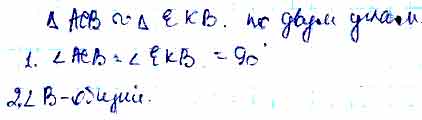 Δ ACB ~ Δ EKB. по двум углам.
1. ∠ACB = ∠EKB = 90°
2. ∠B - общий.